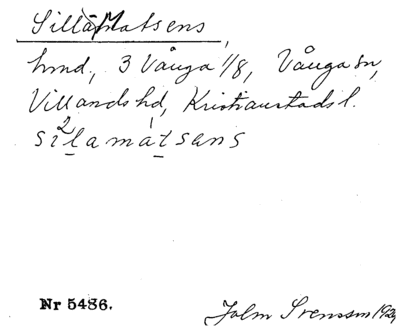 Silla Matsens,
hmd, 3 Vånga 1/8, Vånga sn,
Villands hd, Kristianstads l.
si2lamàtsens
Nr 5486.
John Svensson